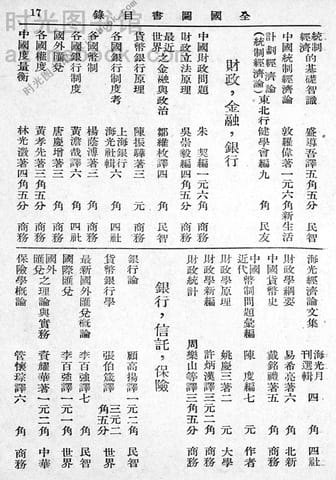 全國圖書目錄
17
統制經濟的基礎智識 盛導吾譯五角五分 民智
中國統制經濟論 敦羅偉著一元六角新生活
計劃經濟論(統制經濟論) 東北行健學會編九角 民友
財政，金融，銀行
中國財政問題 朱 契編一元六角 商務
財政立法原理 吳崇毅編四角五分 商務
最近之金融與政治 鄒維枚譯四角 民智
貨幣銀行原理 陳振驊著三元 商務
各國銀行制度考 上海銀行海光社輯六角 四社
各國幣制 楊蔭溥著二角 商務
各國銀行制度 黃澹哉譯六角 四社
國外匯兌 唐慶增著三角 商務
各國權度 黃孝先著三角五分 商務
中國度量衡 林光澂著四角五分 商務
海光經濟論文集 海光月刊選輯四角 四社
財政學綱要 易希亮著六角 北新
中國貨幣史 戴銘禮著五角 商務
近代中國幣制問題彙編 陳 度編七元 作者
財政學原理 姚慶三著二元 大學
財政學新編 許炳漢譯三元 商務
財政統計 周樂山等譯三角五分 商務
銀行，信託，保險
銀行論 顧高揚譯一元二角 民智
貨幣銀行學 張伯箴譯三元二角五分 世界
最新國外匯兌概論 李百強譯七角 民智
國際匯兌 李百強譯一元一角 世界
國外匯兌之理論與實務 資耀華著一元二角 中華
保險學概論 管懷琮譯六角 商務